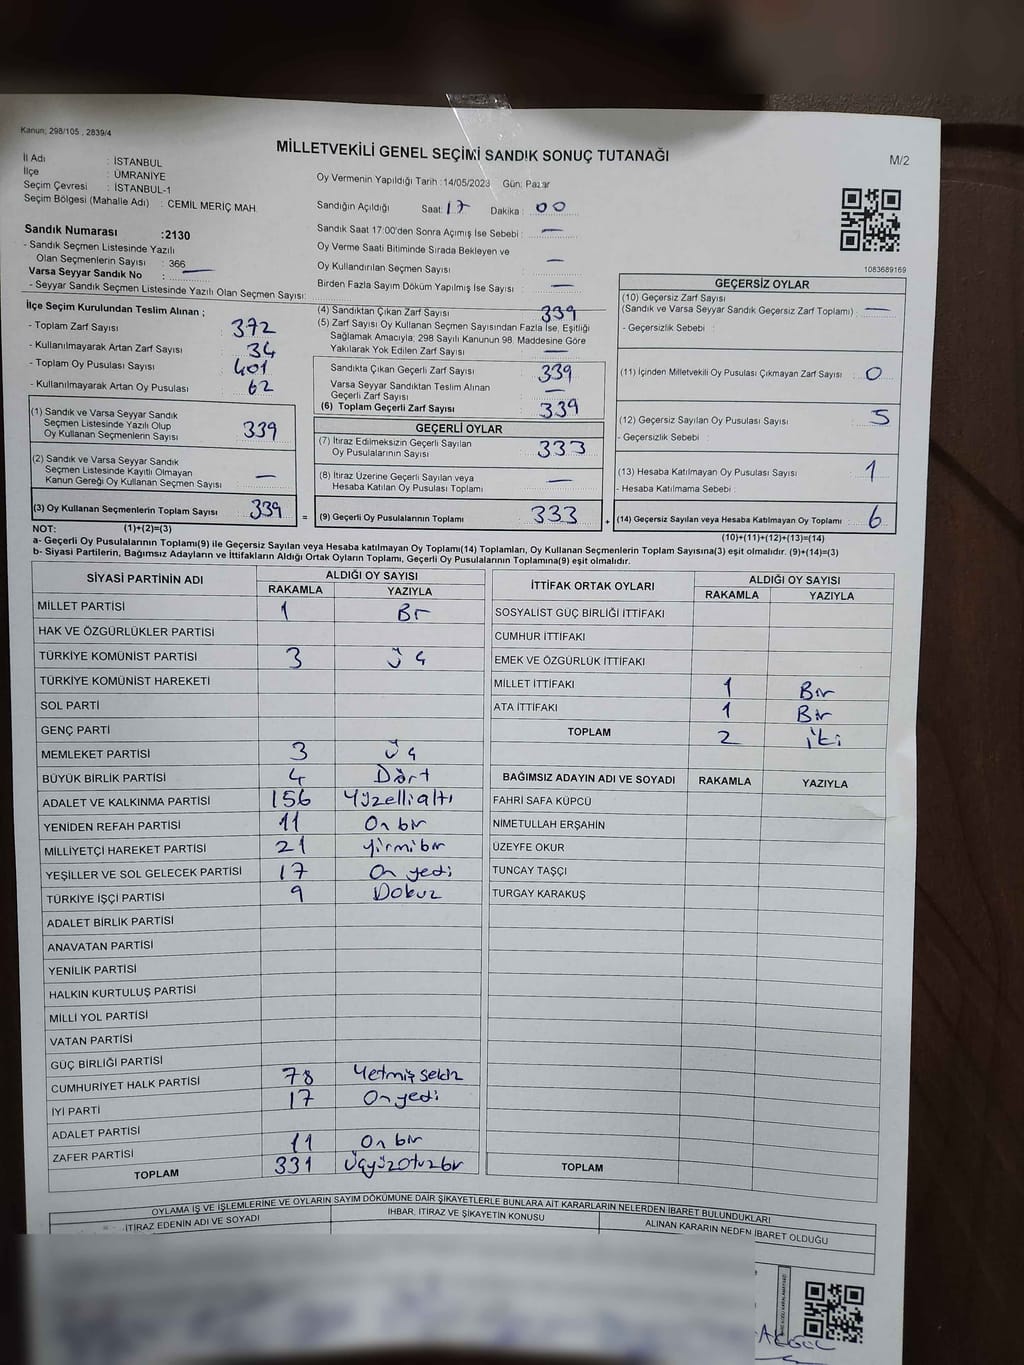 Kanun, 298/105 , 2839/4
MİLLETVEKİLİ GENEL SEÇİMİ SANDIK SONUÇ TUTANAĞI
M/2
İl Adı : İSTANBUL
İlçe : ÜMRANİYE
Seçim Çevresi : İSTANBUL-1
Seçim Bölgesi (Mahalle Adı) : CEMİL MERİÇ MAH.
Oy Vermenin Yapıldığı Tarih :14/05/2023 Gün: Pazar
Sandığın Açıldığı Saat: 17 Dakika : 00
Sandık Numarası :2130
- Sandık Seçmen Listesinde Yazılı
Olan Seçmenlerin Sayısı : 366
Varsa Seyyar Sandık No : —
- Seyyar Sandık Seçmen Listesinde Yazılı Olan Seçmen Sayısı:
Sandık Saat 17:00'den Sonra Açımış İse Sebebi : —
Oy Verme Saati Bitiminde Sırada Bekleyen ve
Oy Kullandırılan Seçmen Sayısı : —
Birden Fazla Sayım Döküm Yapılmış İse Sayısı : —
1083689169
İlçe Seçim Kurulundan Teslim Alınan ;
- Toplam Zarf Sayısı : 372
- Kullanılmayarak Artan Zarf Sayısı : 34
- Toplam Oy Pusulası Sayısı : 401
- Kullanılmayarak Artan Oy Pusulası : 62
(1) Sandık ve Varsa Seyyar Sandık
Seçmen Listesinde Yazılı Olup
Oy Kullanan Seçmenlerin Sayısı : 339
(2) Sandık ve Varsa Seyyar Sandık
Seçmen Listesinde Kayıtlı Olmayan
Kanun Gereği Oy Kullanan Seçmen Sayısı : —
(3) Oy Kullanan Seçmenlerin Toplam Sayısı : 339
(4) Sandıktan Çıkan Zarf Sayısı : 339
(5) Zarf Sayısı Oy Kullanan Seçmen Sayısından Fazla İse, Eşitliği
Sağlamak Amacıyla; 298 Sayılı Kanunun 98. Maddesine Göre
Yakılarak Yok Edilen Zarf Sayısı : —
Sandıkta Çıkan Geçerli Zarf Sayısı : 339
Varsa Seyyar Sandıktan Teslim Alınan
Geçerli Zarf Sayısı : —
(6) Toplam Geçerli Zarf Sayısı : 339
GEÇERLİ OYLAR
(7) İtiraz Edilmeksizin Geçerli Sayılan
Oy Pusulalarının Sayısı : 333
(8) İtiraz Üzerine Geçerli Sayılan veya
Hesaba Katılan Oy Pusulası Toplamı : —
= (9) Geçerli Oy Pusulalarının Toplamı : 333
GEÇERSİZ OYLAR
(10) Geçersiz Zarf Sayısı
(Sandık ve Varsa Seyyar Sandık Geçersiz Zarf Toplamı) : —
- Geçersizlik Sebebi :
(11) İçinden Milletvekili Oy Pusulası Çıkmayan Zarf Sayısı : 0
(12) Geçersiz Sayılan Oy Pusulası Sayısı : 5
- Geçersizlik Sebebi :
(13) Hesaba Katılmayan Oy Pusulası Sayısı : 1
- Hesaba Katılmama Sebebi :
+ (14) Geçersiz Sayılan veya Hesaba Katılmayan Oy Toplamı : 6
NOT: (1)+(2)=(3)
(10)+(11)+(12)+(13)=(14)
a- Geçerli Oy Pusulalarının Toplamı(9) ile Geçersiz Sayılan veya Hesaba katılmayan Oy Toplamı(14) Toplamları, Oy Kullanan Seçmenlerin Toplam Sayısına(3) eşit olmalıdır. (9)+(14)=(3)
b- Siyasi Partilerin, Bağımsız Adayların ve İttifakların Aldığı Ortak Oyların Toplamı, Geçerli Oy Pusulalarının Toplamına(9) eşit olmalıdır.
SİYASİ PARTİNİN ADI ALDIĞI OY SAYISI
RAKAMLA YAZIYLA
MİLLET PARTİSİ 1 Bir
HAK VE ÖZGÜRLÜKLER PARTİSİ
TÜRKİYE KOMÜNİST PARTİSİ 3 Üç
TÜRKİYE KOMÜNİST HAREKETİ
SOL PARTİ
GENÇ PARTİ
MEMLEKET PARTİSİ 3 Üç
BÜYÜK BİRLİK PARTİSİ 4 Dört
ADALET VE KALKINMA PARTİSİ 156 Yüzellialtı
YENİDEN REFAH PARTİSİ 11 On bir
MİLLİYETÇİ HAREKET PARTİSİ 21 Yirmibir
YEŞİLLER VE SOL GELECEK PARTİSİ 17 On yedi
TÜRKİYE İŞÇİ PARTİSİ 9 Dokuz
ADALET BİRLİK PARTİSİ
ANAVATAN PARTİSİ
YENİLİK PARTİSİ
HALKIN KURTULUŞ PARTİSİ
MİLLİ YOL PARTİSİ
VATAN PARTİSİ
GÜÇ BİRLİĞİ PARTİSİ
CUMHURİYET HALK PARTİSİ 78 Yetmiş sekiz
İYİ PARTİ 17 On yedi
ADALET PARTİSİ
ZAFER PARTİSİ 11 On bir
TOPLAM 331 Üçyüzotuzbir
İTTİFAK ORTAK OYLARI ALDIĞI OY SAYISI
RAKAMLA YAZIYLA
SOSYALİST GÜÇ BİRLİĞİ İTTİFAKI
CUMHUR İTTİFAKI
EMEK VE ÖZGÜRLÜK İTTİFAKI
MİLLET İTTİFAKI 1 Bir
ATA İTTİFAKI 1 Bir
TOPLAM 2 iki
BAĞIMSIZ ADAYIN ADI VE SOYADI RAKAMLA YAZIYLA
FAHRİ SAFA KÜPCÜ
NİMETULLAH ERŞAHİN
ÜZEYFE OKUR
TUNCAY TAŞÇI
TURGAY KARAKUŞ
TOPLAM
OYLAMA İŞ VE İŞLEMLERİNE VE OYLARIN SAYIM DÖKÜMÜNE DAİR ŞİKAYETLERLE BUNLARA AİT KARARLARIN NELERDEN İBARET BULUNDUKLARI
İTİRAZ EDENİN ADI VE SOYADI İHBAR, İTİRAZ VE ŞİKAYETİN KONUSU ALINAN KARARIN NEDEN İBARET OLDUĞU